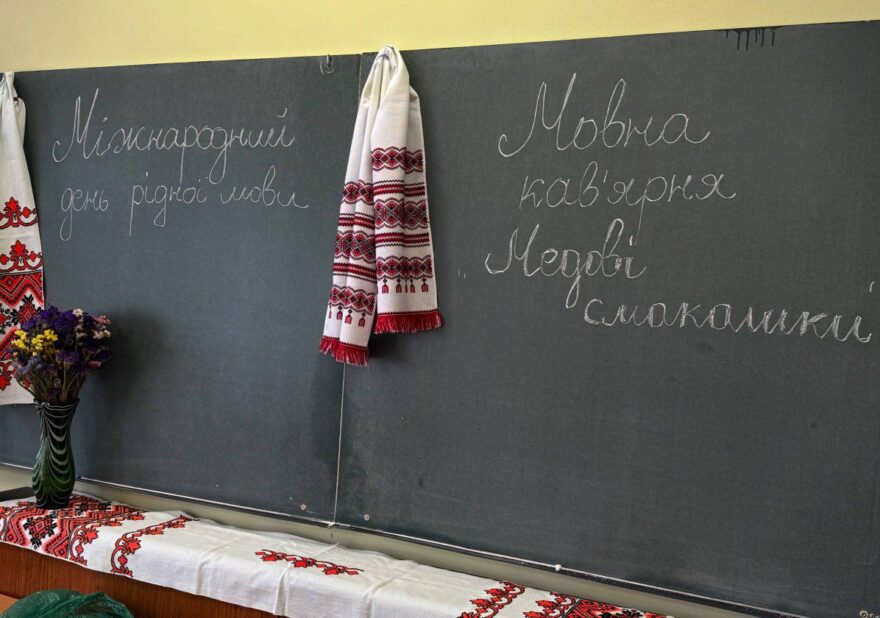 Міжнародний
день рідної мови
Мовна
кав'ярня
"Медові
смаколики"